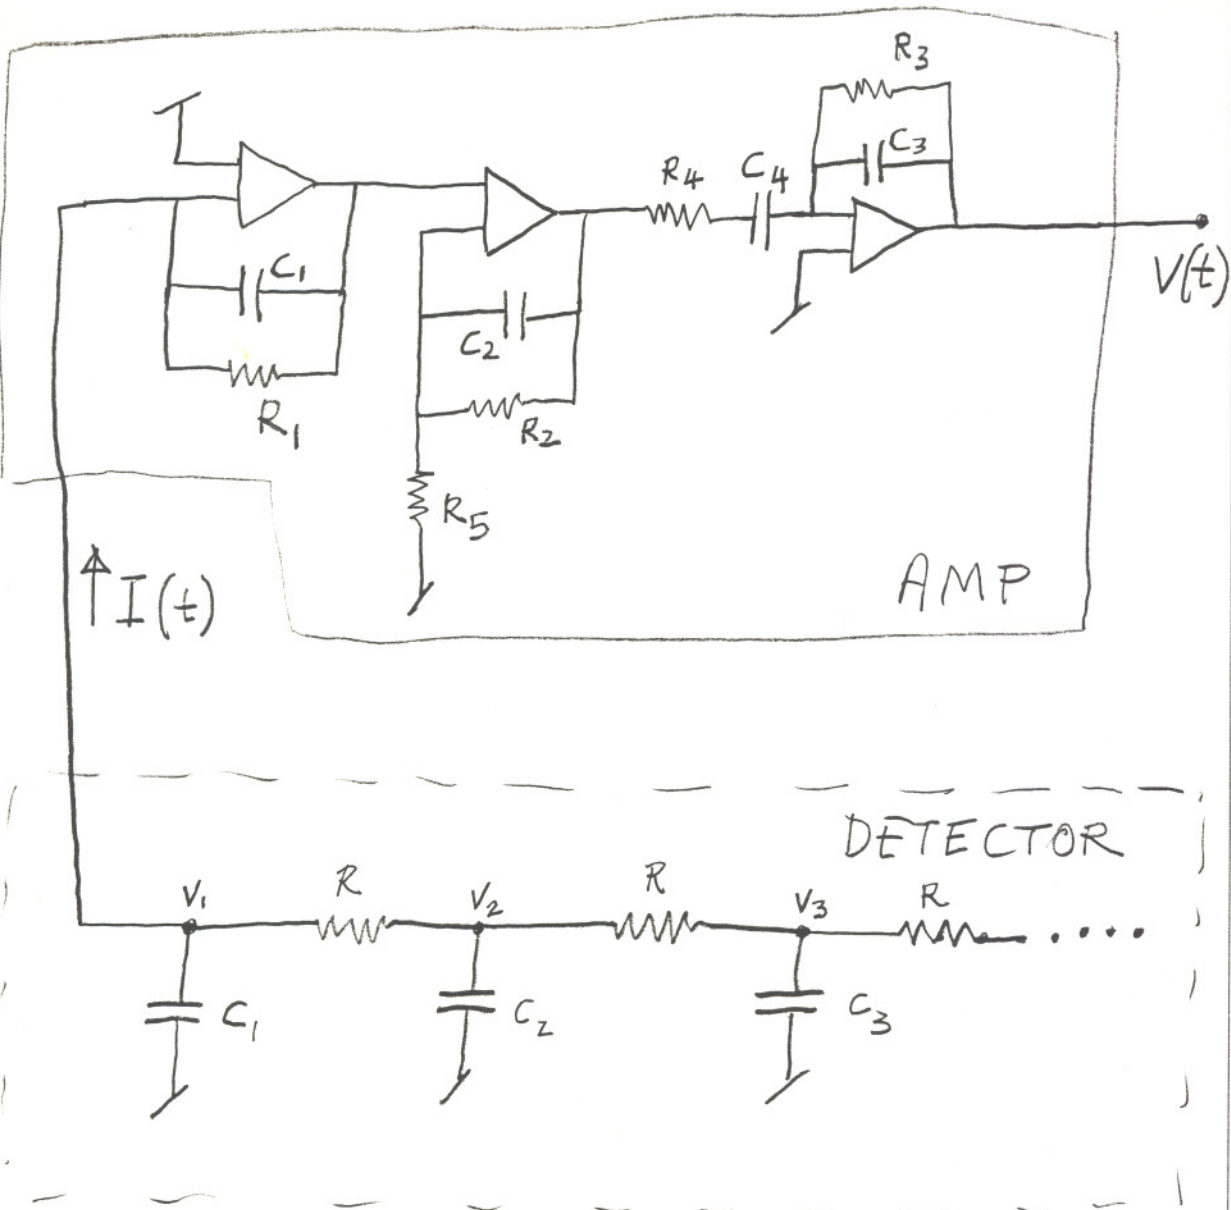 R3
C3
R4
C4
C1
V(t)
C2
R1
R2
R5
I(t)
AMP
DETECTOR
V1
R
V2
R
V3
R
C1
C2
C3